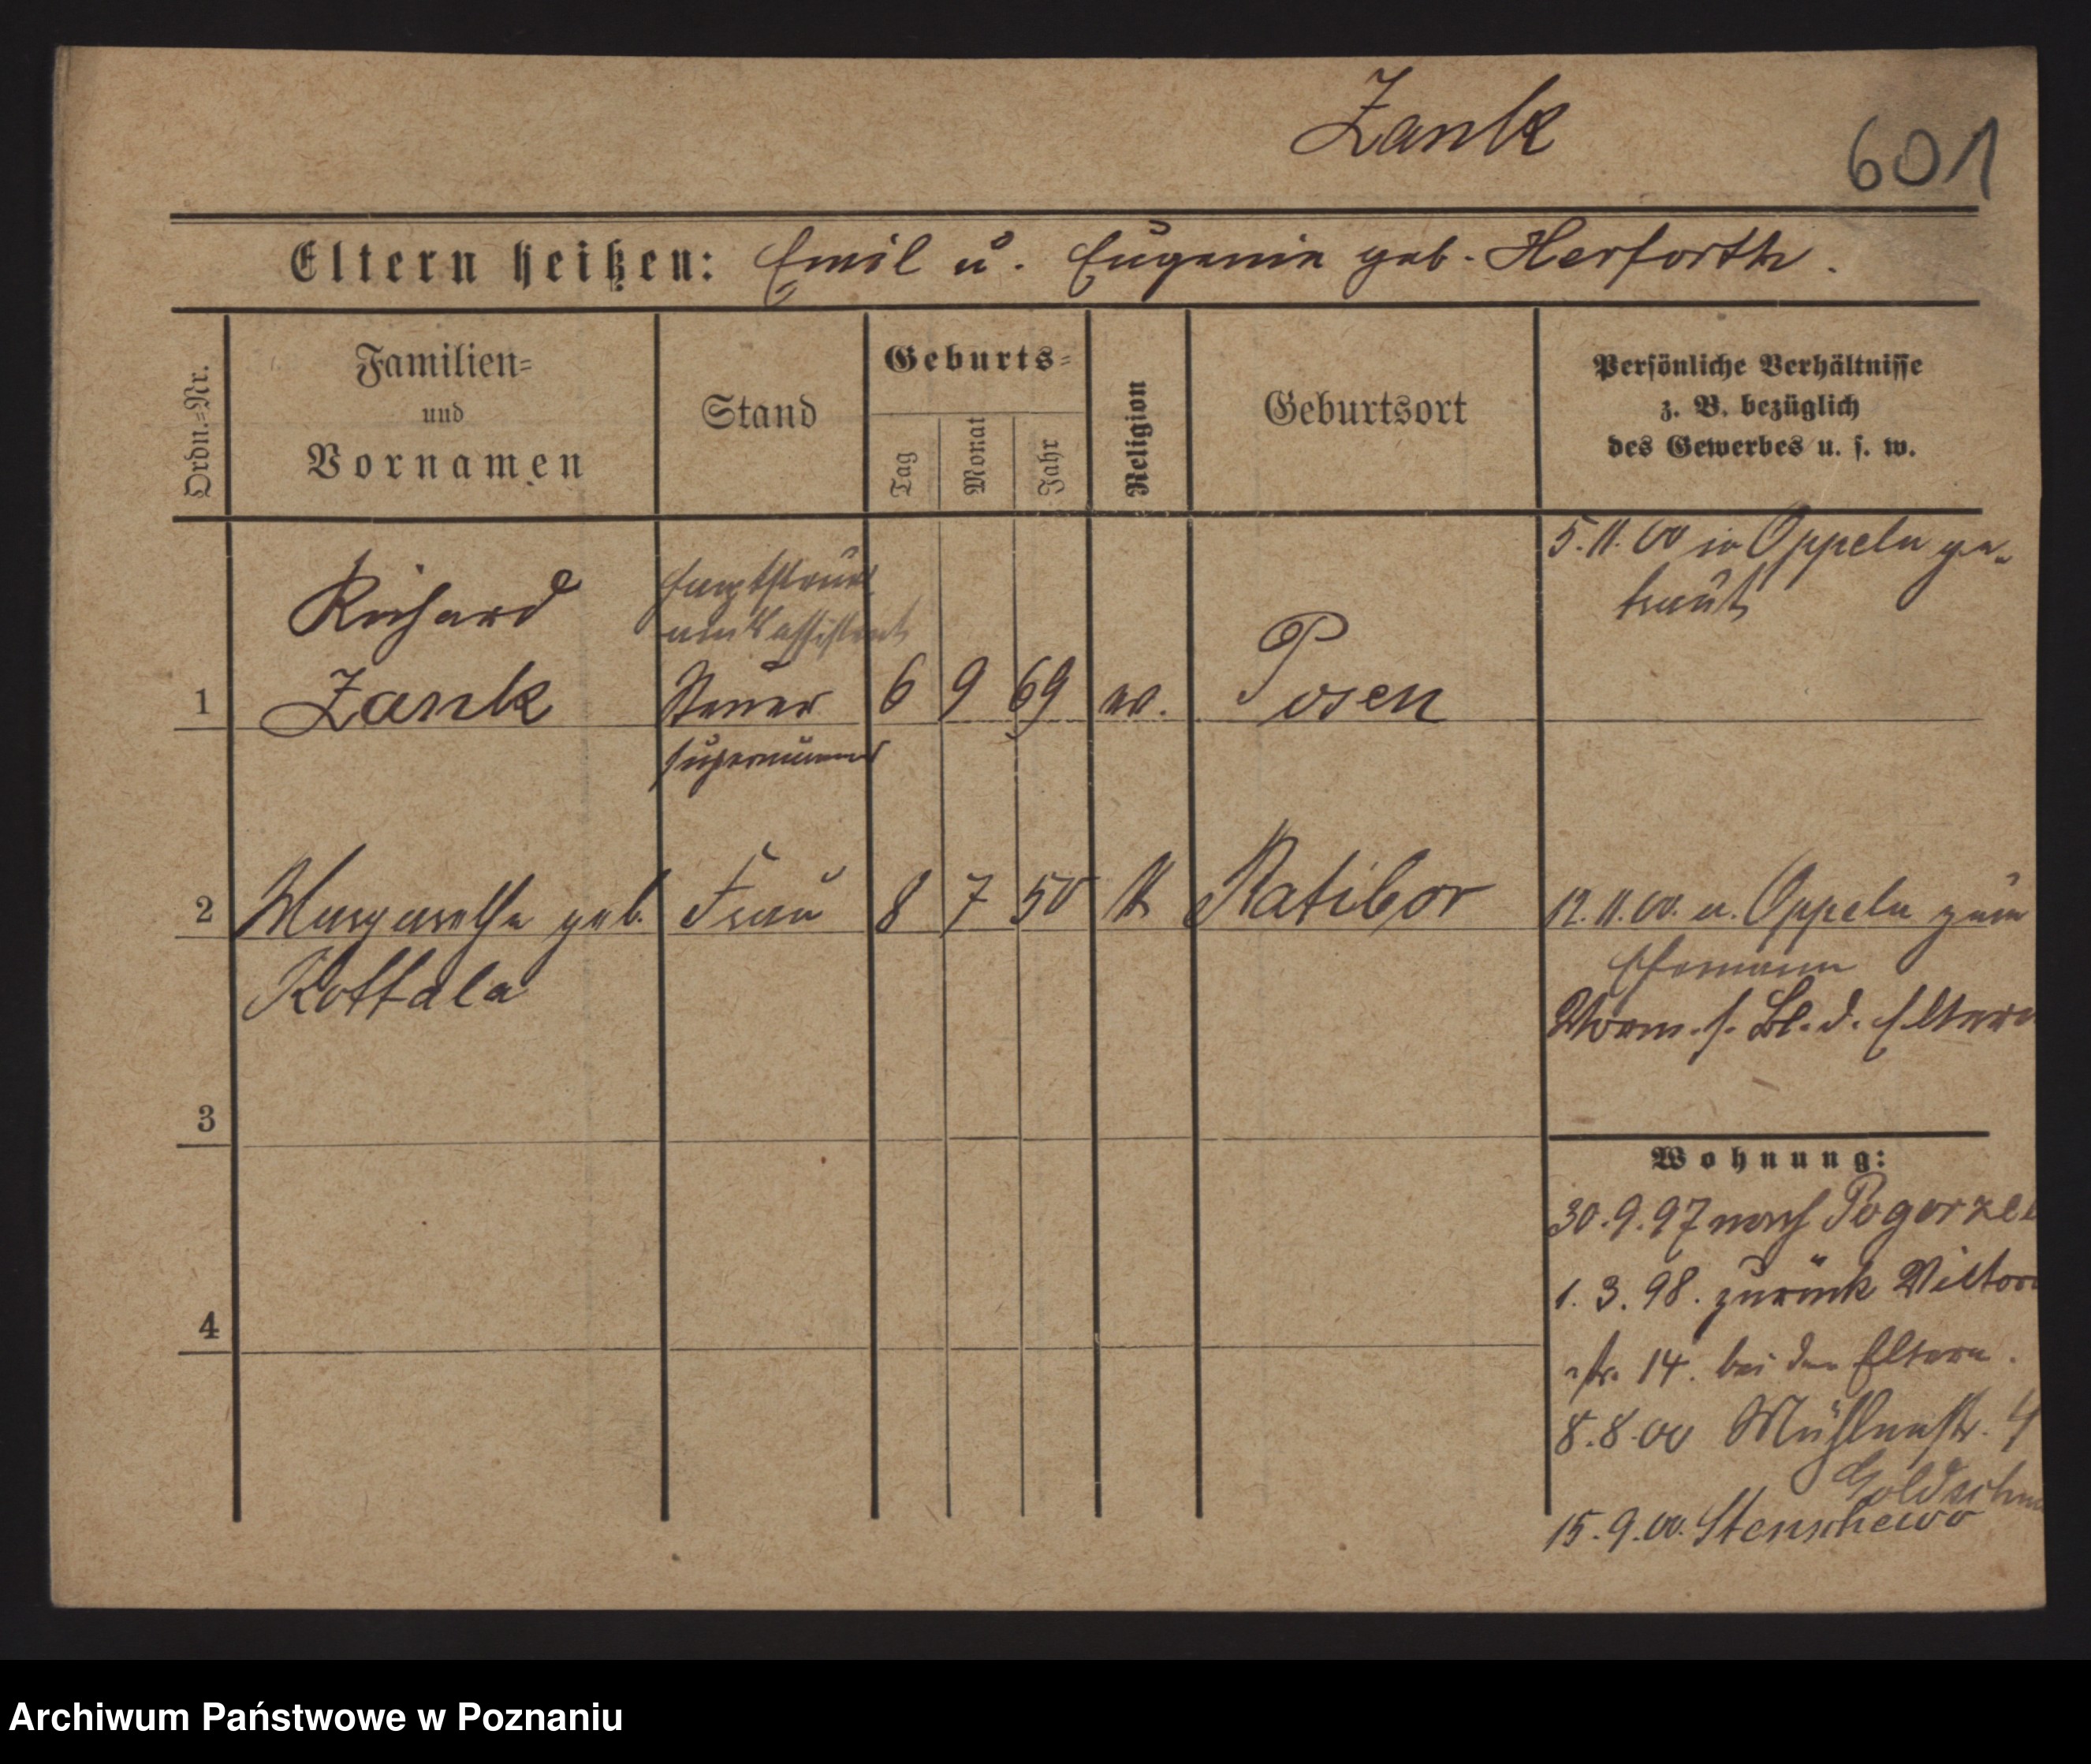 Zank
601
Eltern heißen: Emil u. Eugenie geb. Herforth.
Ordn.-Nr.
Familien-
und
Vornamen
Stand
Geburts-
Tag
Monat
Jahr
Religion
Geburtsort
Persönliche Verhältnisse
z. B. bezüglich
des Gewerbes u. s. w.
5.11.00 in Oppeln ge-
traut
Richard
Hauptsteuer
amtsassistent
1 Zank Steuer 6 9 69 ev. Posen
supernumerar
2 Margarethe geb. Frau 8 7 50 K Ratibor 12.11.00. a. Oppeln zum
Kottala
Ehemann
Vorm. s. Bl. d. Eltern
3
Wohnung:
30.9.97 nach Pogorzel
1.3.98. zurück Viktori
4
str. 14. bei den Eltern.
8.8.00 Mühlenstr. 4
Goldschm
15.9.00. Stenschewo
Archiwum Państwowe w Poznaniu